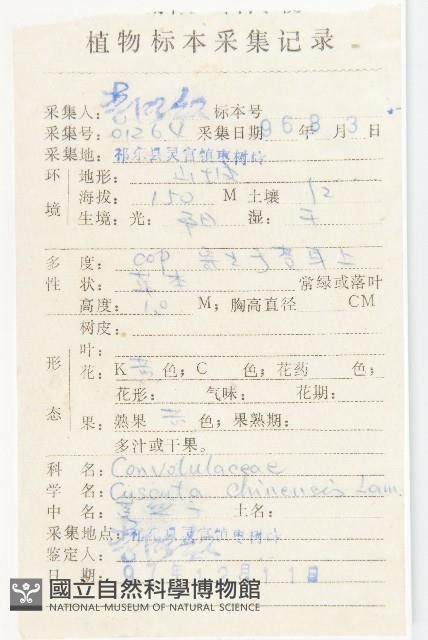 植物标本采集记录
采集人: 标本号
采集号: 01264 采集日期 96年8月3日
采集地: 祁东县灵官镇枣树岭
环境 地形:
海拔: 150 M 土壤
生境: 光: 湿: 干
多度: cop
性状: 草本 常绿或落叶
高度: 1.0 M; 胸高直径 CM
树皮:
形态 叶:
花: K 黄 色; C 色; 花药 色;
花形: 气味: 花期:
果: 熟果 黄 色; 果熟期:
多汁或干果。
科名: Convolulaceae
学名: Cuscuta chinensis Lam.
中名: 菟丝子 土名:
采集地点: 祁东县灵官镇枣树岭
鉴定人:
日期: 97年12月11日
國立自然科學博物館
NATIONAL MUSEUM OF NATURAL SCIENCE